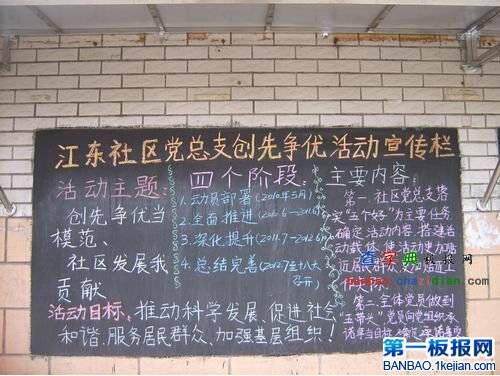 江东社区党总支创先争优活动宣传栏
活动主题:
创先争优当
模范、
社区发展我
贡献
四个阶段:
1.动员部署(2010年5月)
2.全面推进(2010.6-2011.6)
3.深化提升(2011.7-2012.6)
4.总结完善(2012.7至十八大
召开)
活动目标:推动科学发展、促进社会
和谐、服务居民群众、加强基层组织!
主要内容:
第一、社区党总支落
实"五个好"为主要任务
确定活动内容,搭建活
动载体,使活动更加贴
近居民群众,更加贴近
第二、全体党员做到
"五带头",党员向党组织承
诺
第一板报网
BANBAO.1kejian.com
查字典 板报网
banbao.chazidian.com